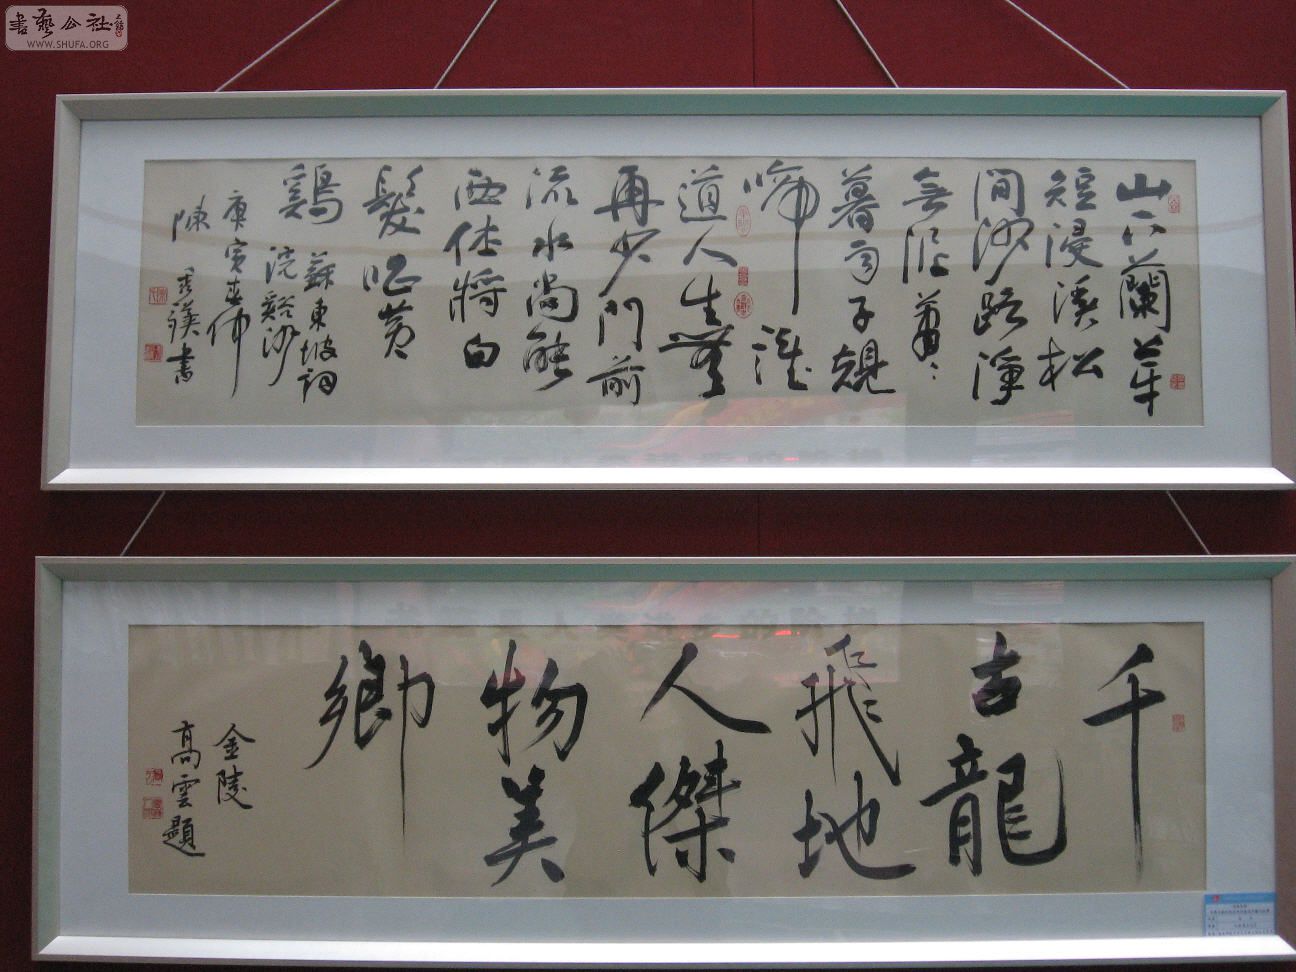 書藝公社
WWW.SHUFA.ORG
山下蘭芽
短浸溪松
間沙路淨
無泥蕭〻
暮雨子規
啼誰
道人生無
再少門前
流水尚能
西休將白
髮唱黃
鷄
蘇東坡詞
浣谿沙
庚寅春仲
陳書
千
古龍
飛地
人傑
物美
鄉
金陵
高雲題